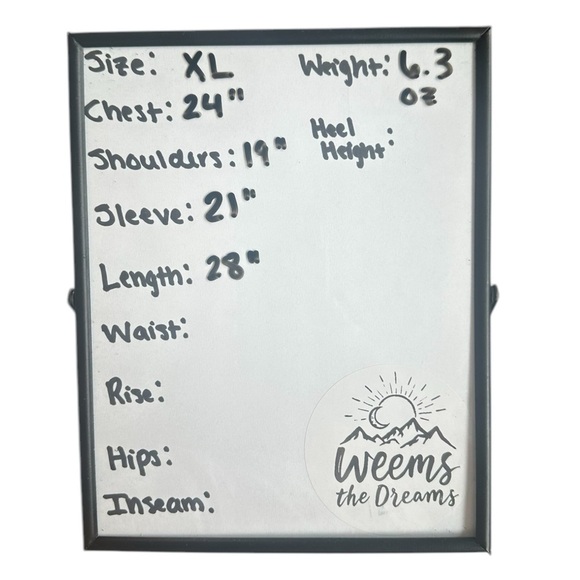 Size: XL
Chest: 24"
Shoulders: 19"
Sleeve: 21"
Length: 28"
Waist:
Rise:
Hips:
Inseam:
Weight: 6.3
oz
Heel
Height:
Weems
the Dreams